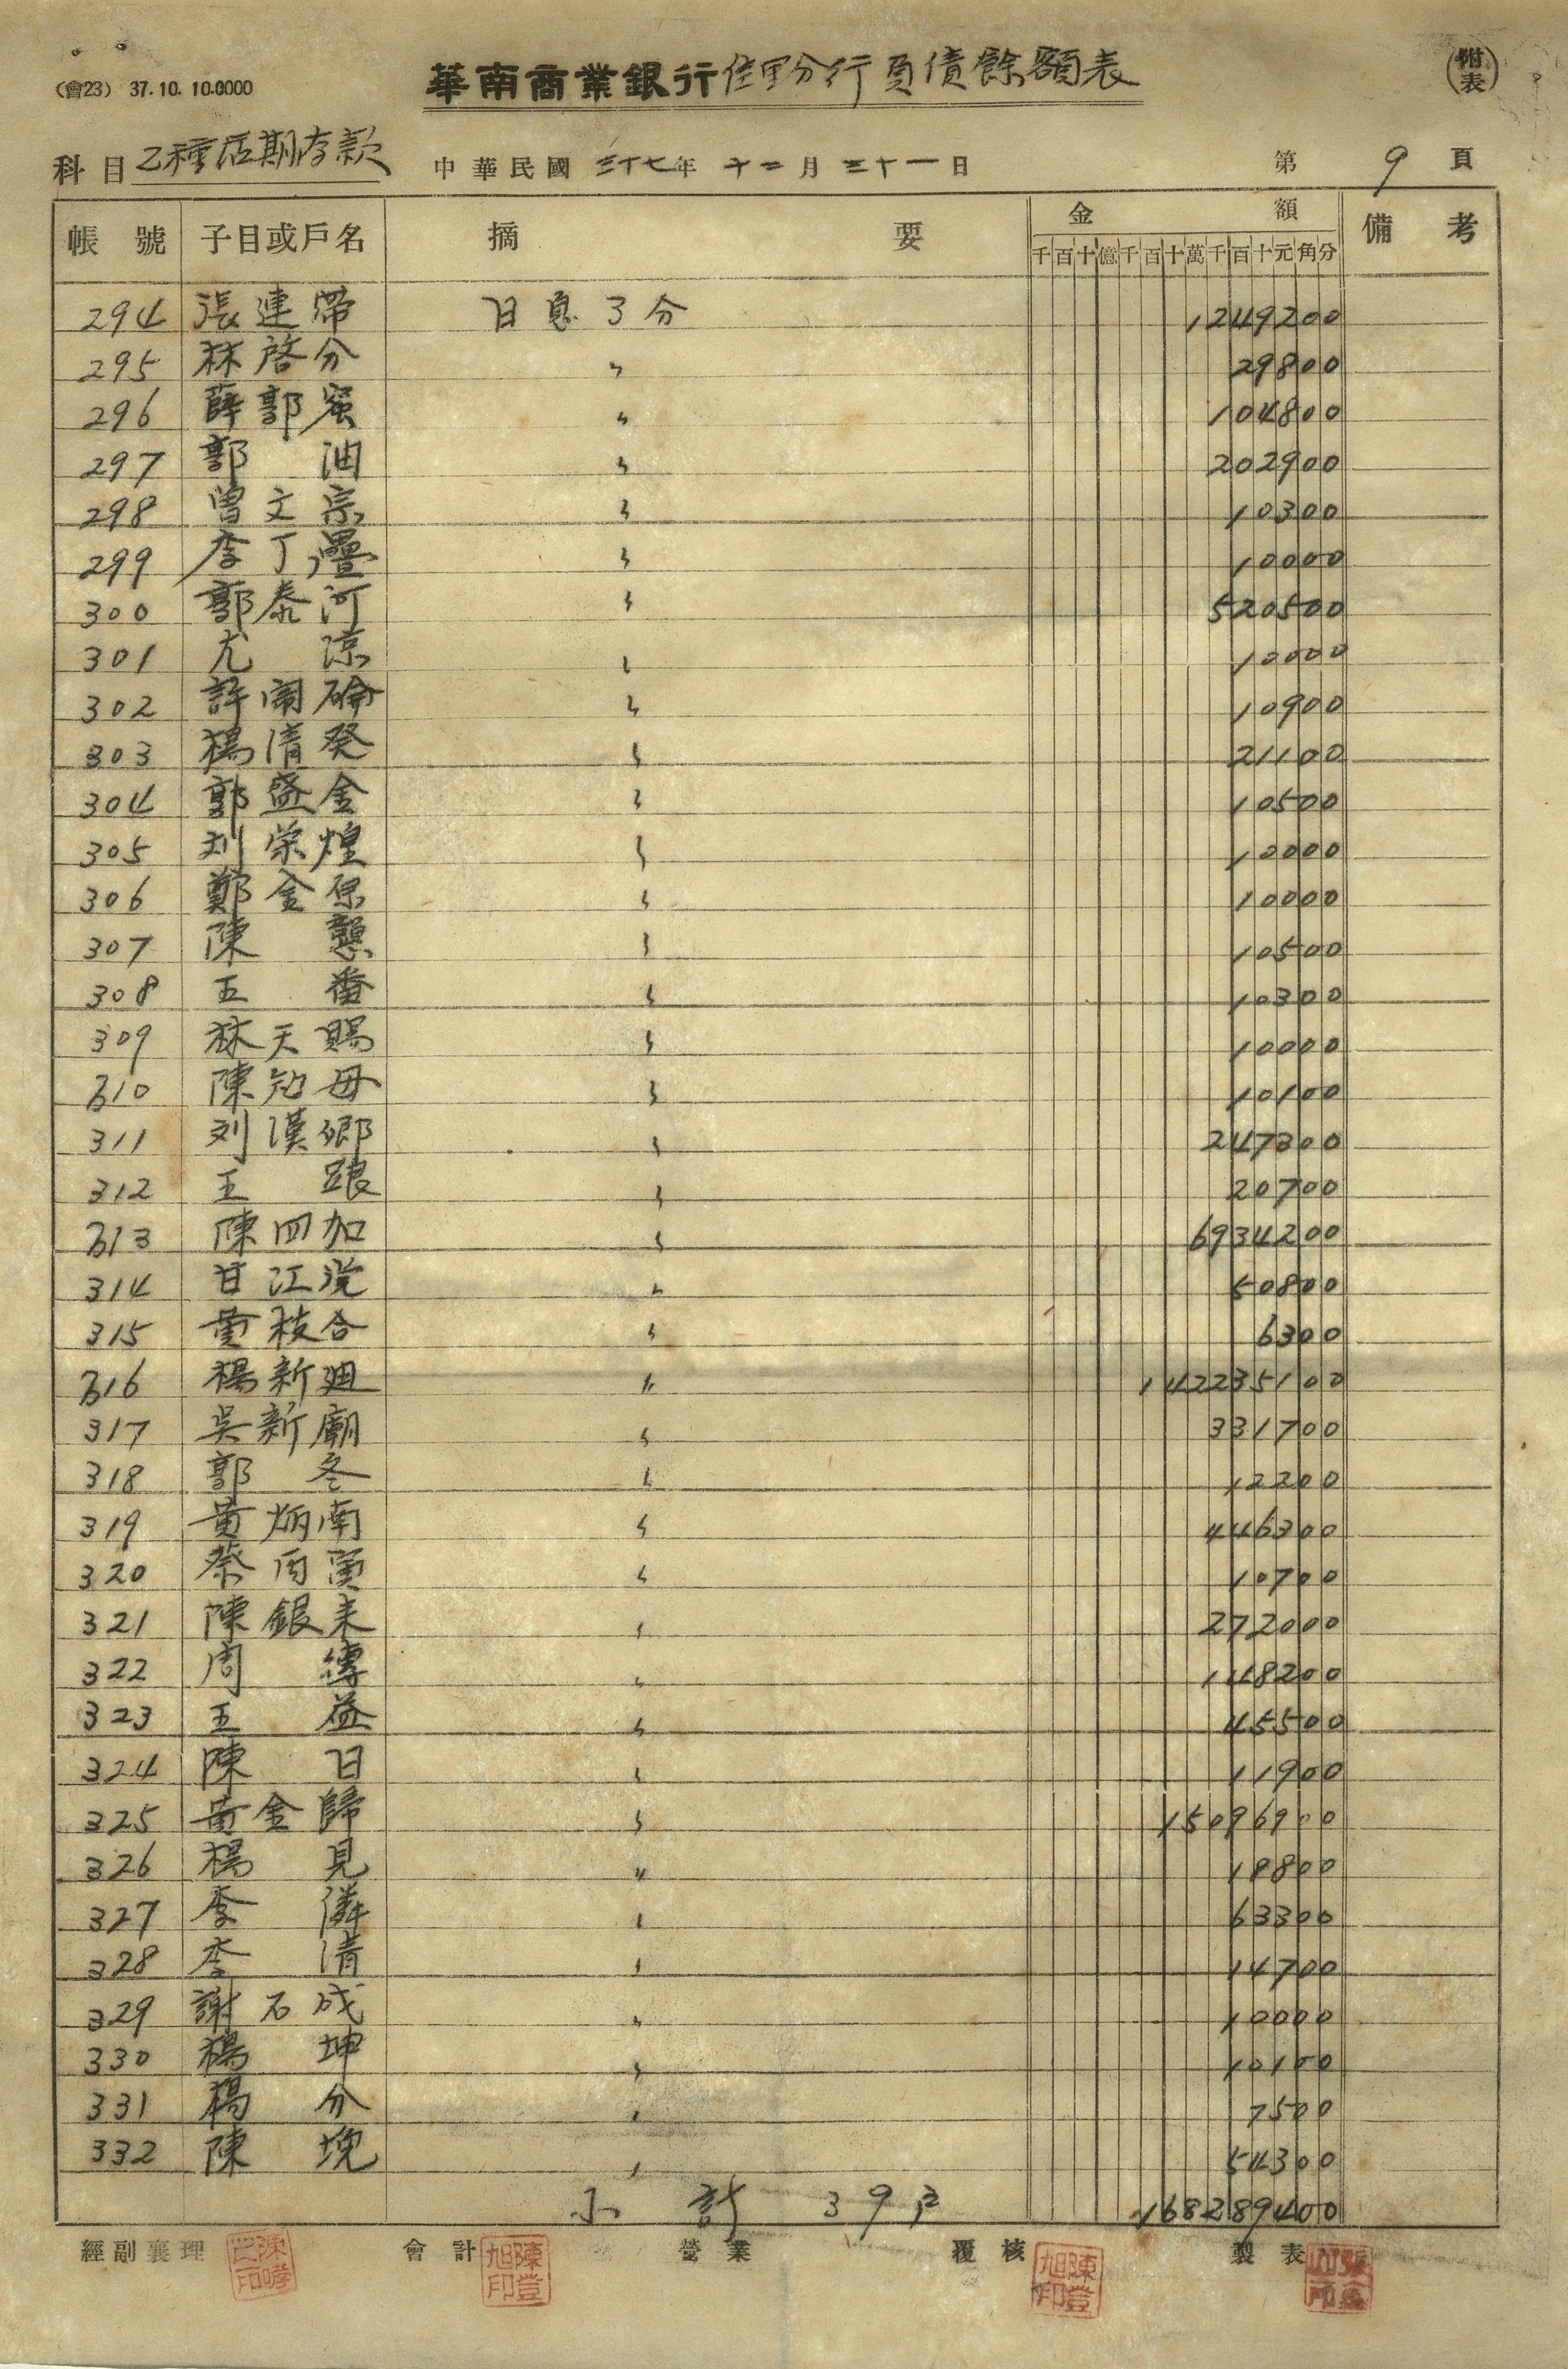 (會23) 37.10.10.0000
華南商業銀行佳里分行負債餘額表
附表
科目 乙種活期存款 中華民國 三十七年 十二月 三十一日 第 9 頁
帳號 子目或戶名 摘要 金額 備考
千百十億千百十萬千百十元角分
294 張連帶 日息3分 1249200
295 林啓分 〃 29800
296 薛郭蜜 〃 104800
297 郭油 〃 202900
298 曾文宗 〃 10300
299 李丁疊 〃 10000
300 郭泰河 〃 520500
301 尤凉 〃 10000
302 許闹 〃 10900
303 楊清癸 〃 21100
304 郭盛金 〃 10500
305 刘荣煌 〃 10000
306 鄭金保 〃 10000
307 陳 〃 10500
308 王番 〃 10300
309 林天賜 〃 10000
310 陳母 〃 10100
311 刘漢卿 〃 247300
312 王踉 〃 20700
313 陳四加 〃 6934200
314 甘江 〃 50800
315 黄枝合 〃 6300
316 楊新廻 〃 142235100
317 吳新廟 〃 331700
318 郭冬 〃 12200
319 黄炳南 〃 446300
320 蔡丙寅 〃 10700
321 陳銀来 〃 272000
322 周縛 〃 148200
323 王益 〃 45500
324 陳日 〃 11900
325 黄金歸 〃 15096900
326 楊見 〃 18800
327 李 〃 63300
328 李清 〃 14700
329 謝石成 〃 10000
330 楊坤 〃 10100
331 楊分 〃 7500
332 陳塊 〃 54300
小計 39戶 168289400
經副襄理 會計 營業 覆核 製表
陳登旭印
陳登旭印